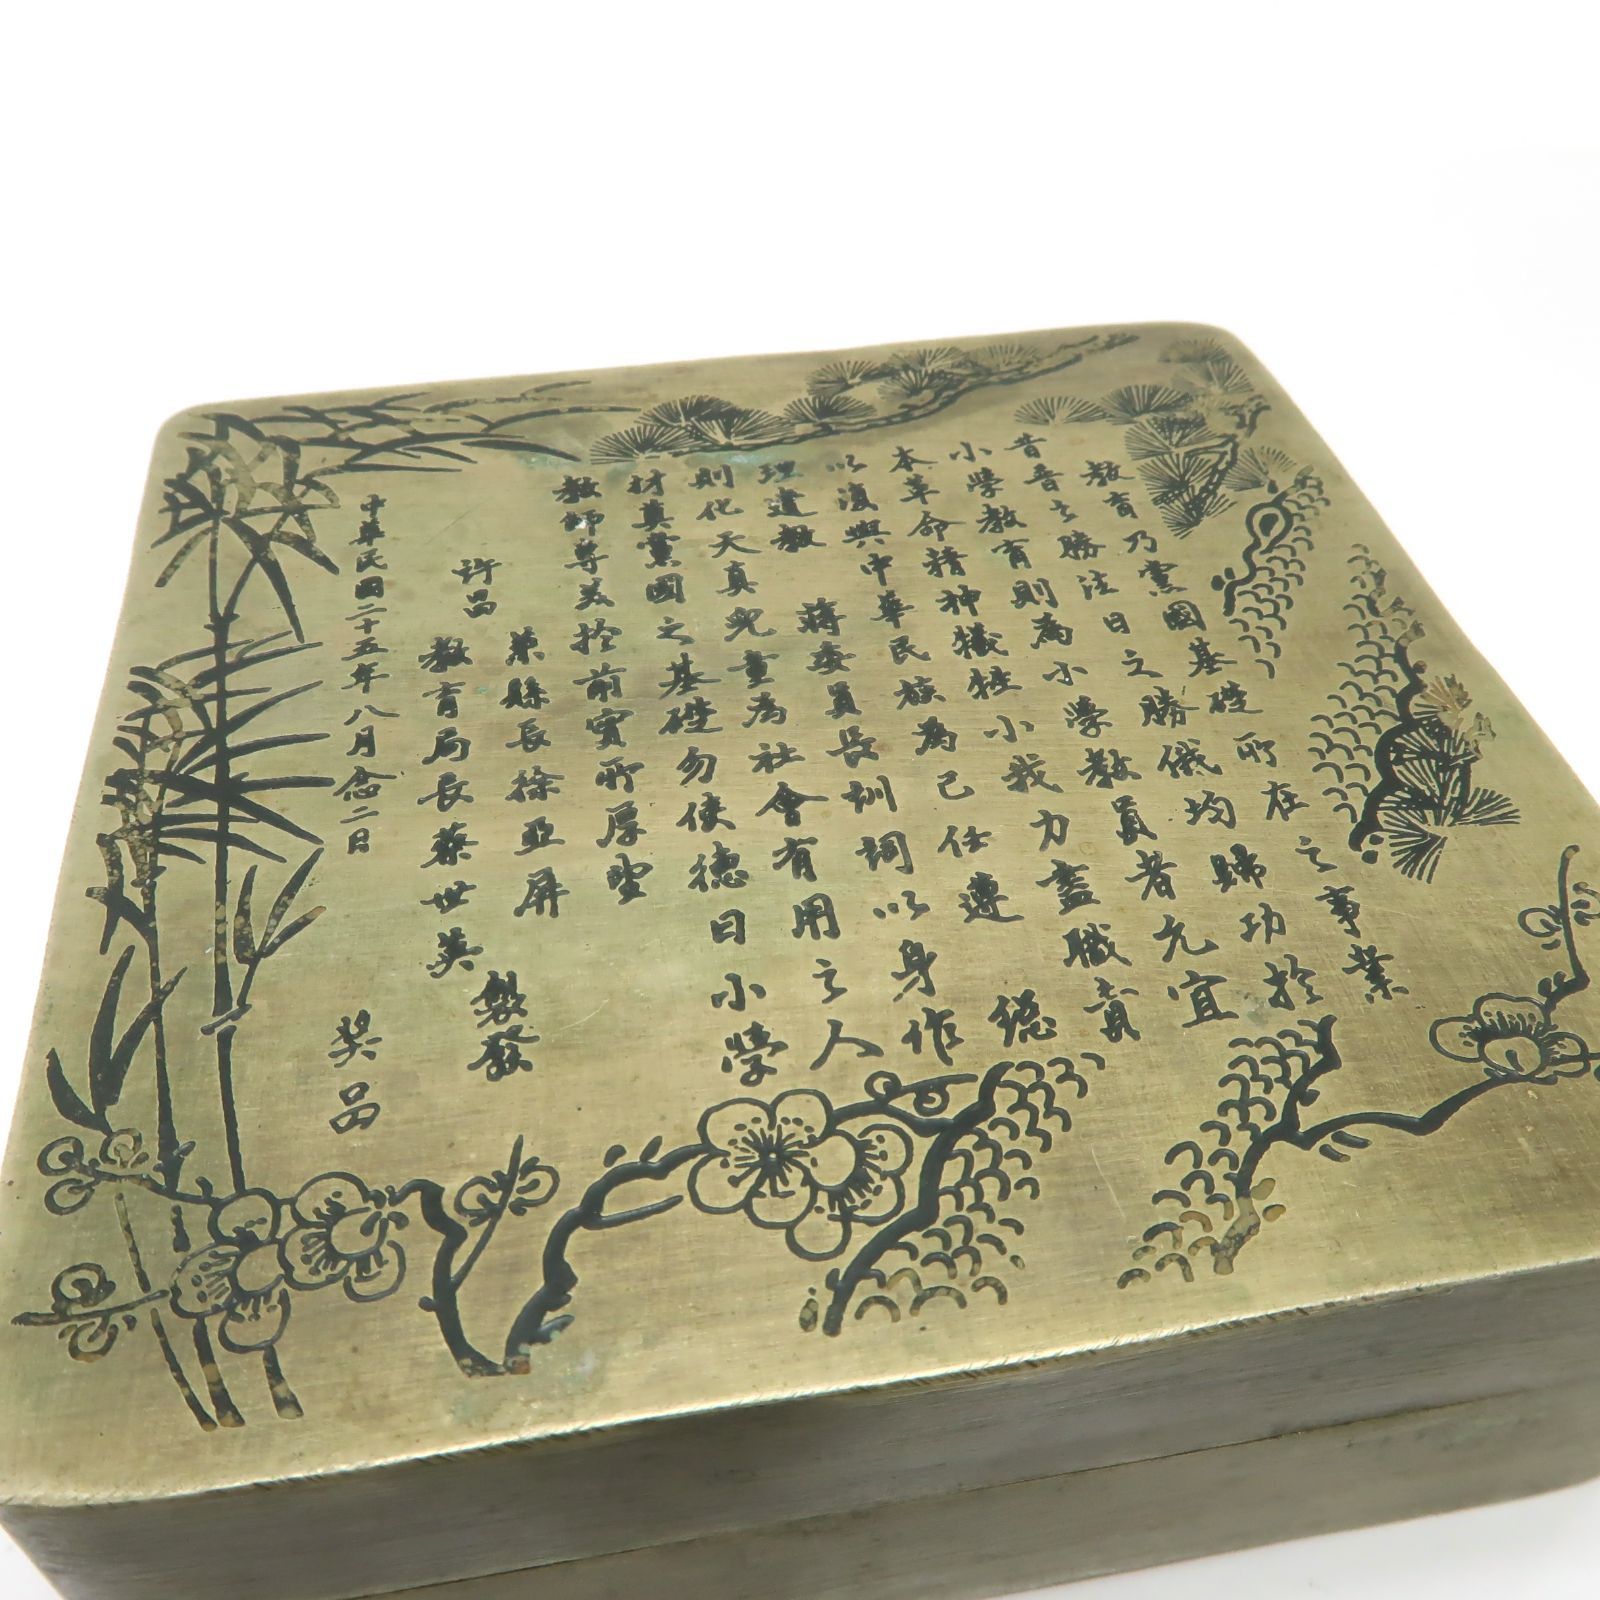 教育乃黨國基礎所在之事業
昔普之勝法日之勝俄均歸功於
小學教育則為小學教員者允宜
本革命精神犧牲小我力盡職責
以復興中華民族為己任遵 總
理遺教 蔣委員長訓詞以身作
則化天真兒童為社會有用之人
材奠黨國之基礎勿使德日小學
教師專美於前實所厚望
兼縣長徐亞屏
許昌 製發
教育局長蔡世英
中華民國二十五年八月念二日
獎品